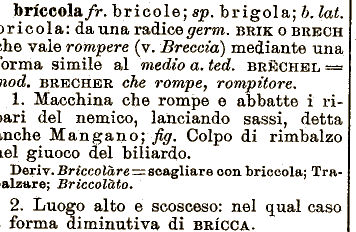 bríccola fr. bricole; sp. brigola; b. lat.
bricola: da una radice germ. BRIK O BRECH
che vale rompere (v. Breccia) mediante una
forma simile al medio a. ted. BRËCHEL =
mod. BRECHER che rompe, rompitore.
1. Macchina che rompe e abbatte i ri-
pari del nemico, lanciando sassi, detta
anche Mangano; fig. Colpo di rimbalzo
nel giuoco del biliardo.
Deriv. Briccolàre=scagliare con briccola; Tra-
balzare; Briccolàto.
2. Luogo alto e scosceso: nel qual caso
è forma diminutiva di BRÍCCA.